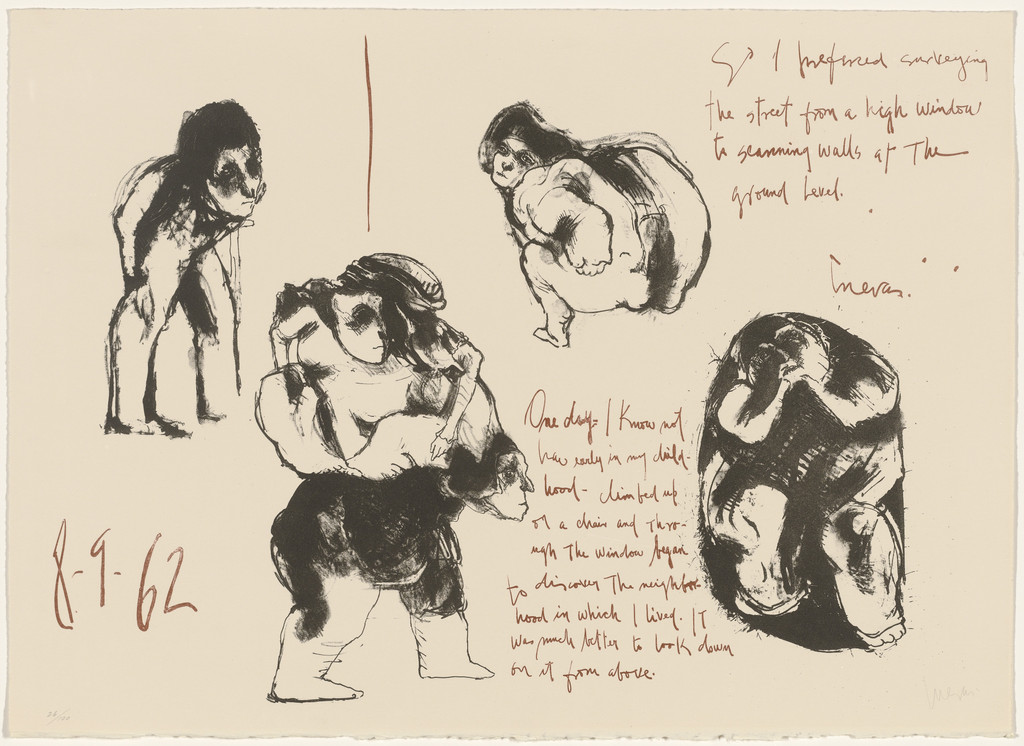 So I preferred surveying
the street from a high window
to scanning walls at the
ground level.
Cuevas.
One day - I know not
how early in my child-
hood - climbed up
on a chair and thro-
ugh the window began
to discover the neighbor
hood in which I lived. It
was much better to look down
on it from above.
8-9-62
Cuevas